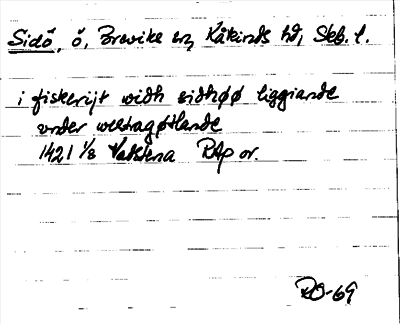 Sidö, ö, Brevike sn, Kåkinds hd, Skb. l.
i fiskerijt widh sidhøø liggiande
vnder westragøtlande
1421 1/8 Vadstena RAp or.
RO-69